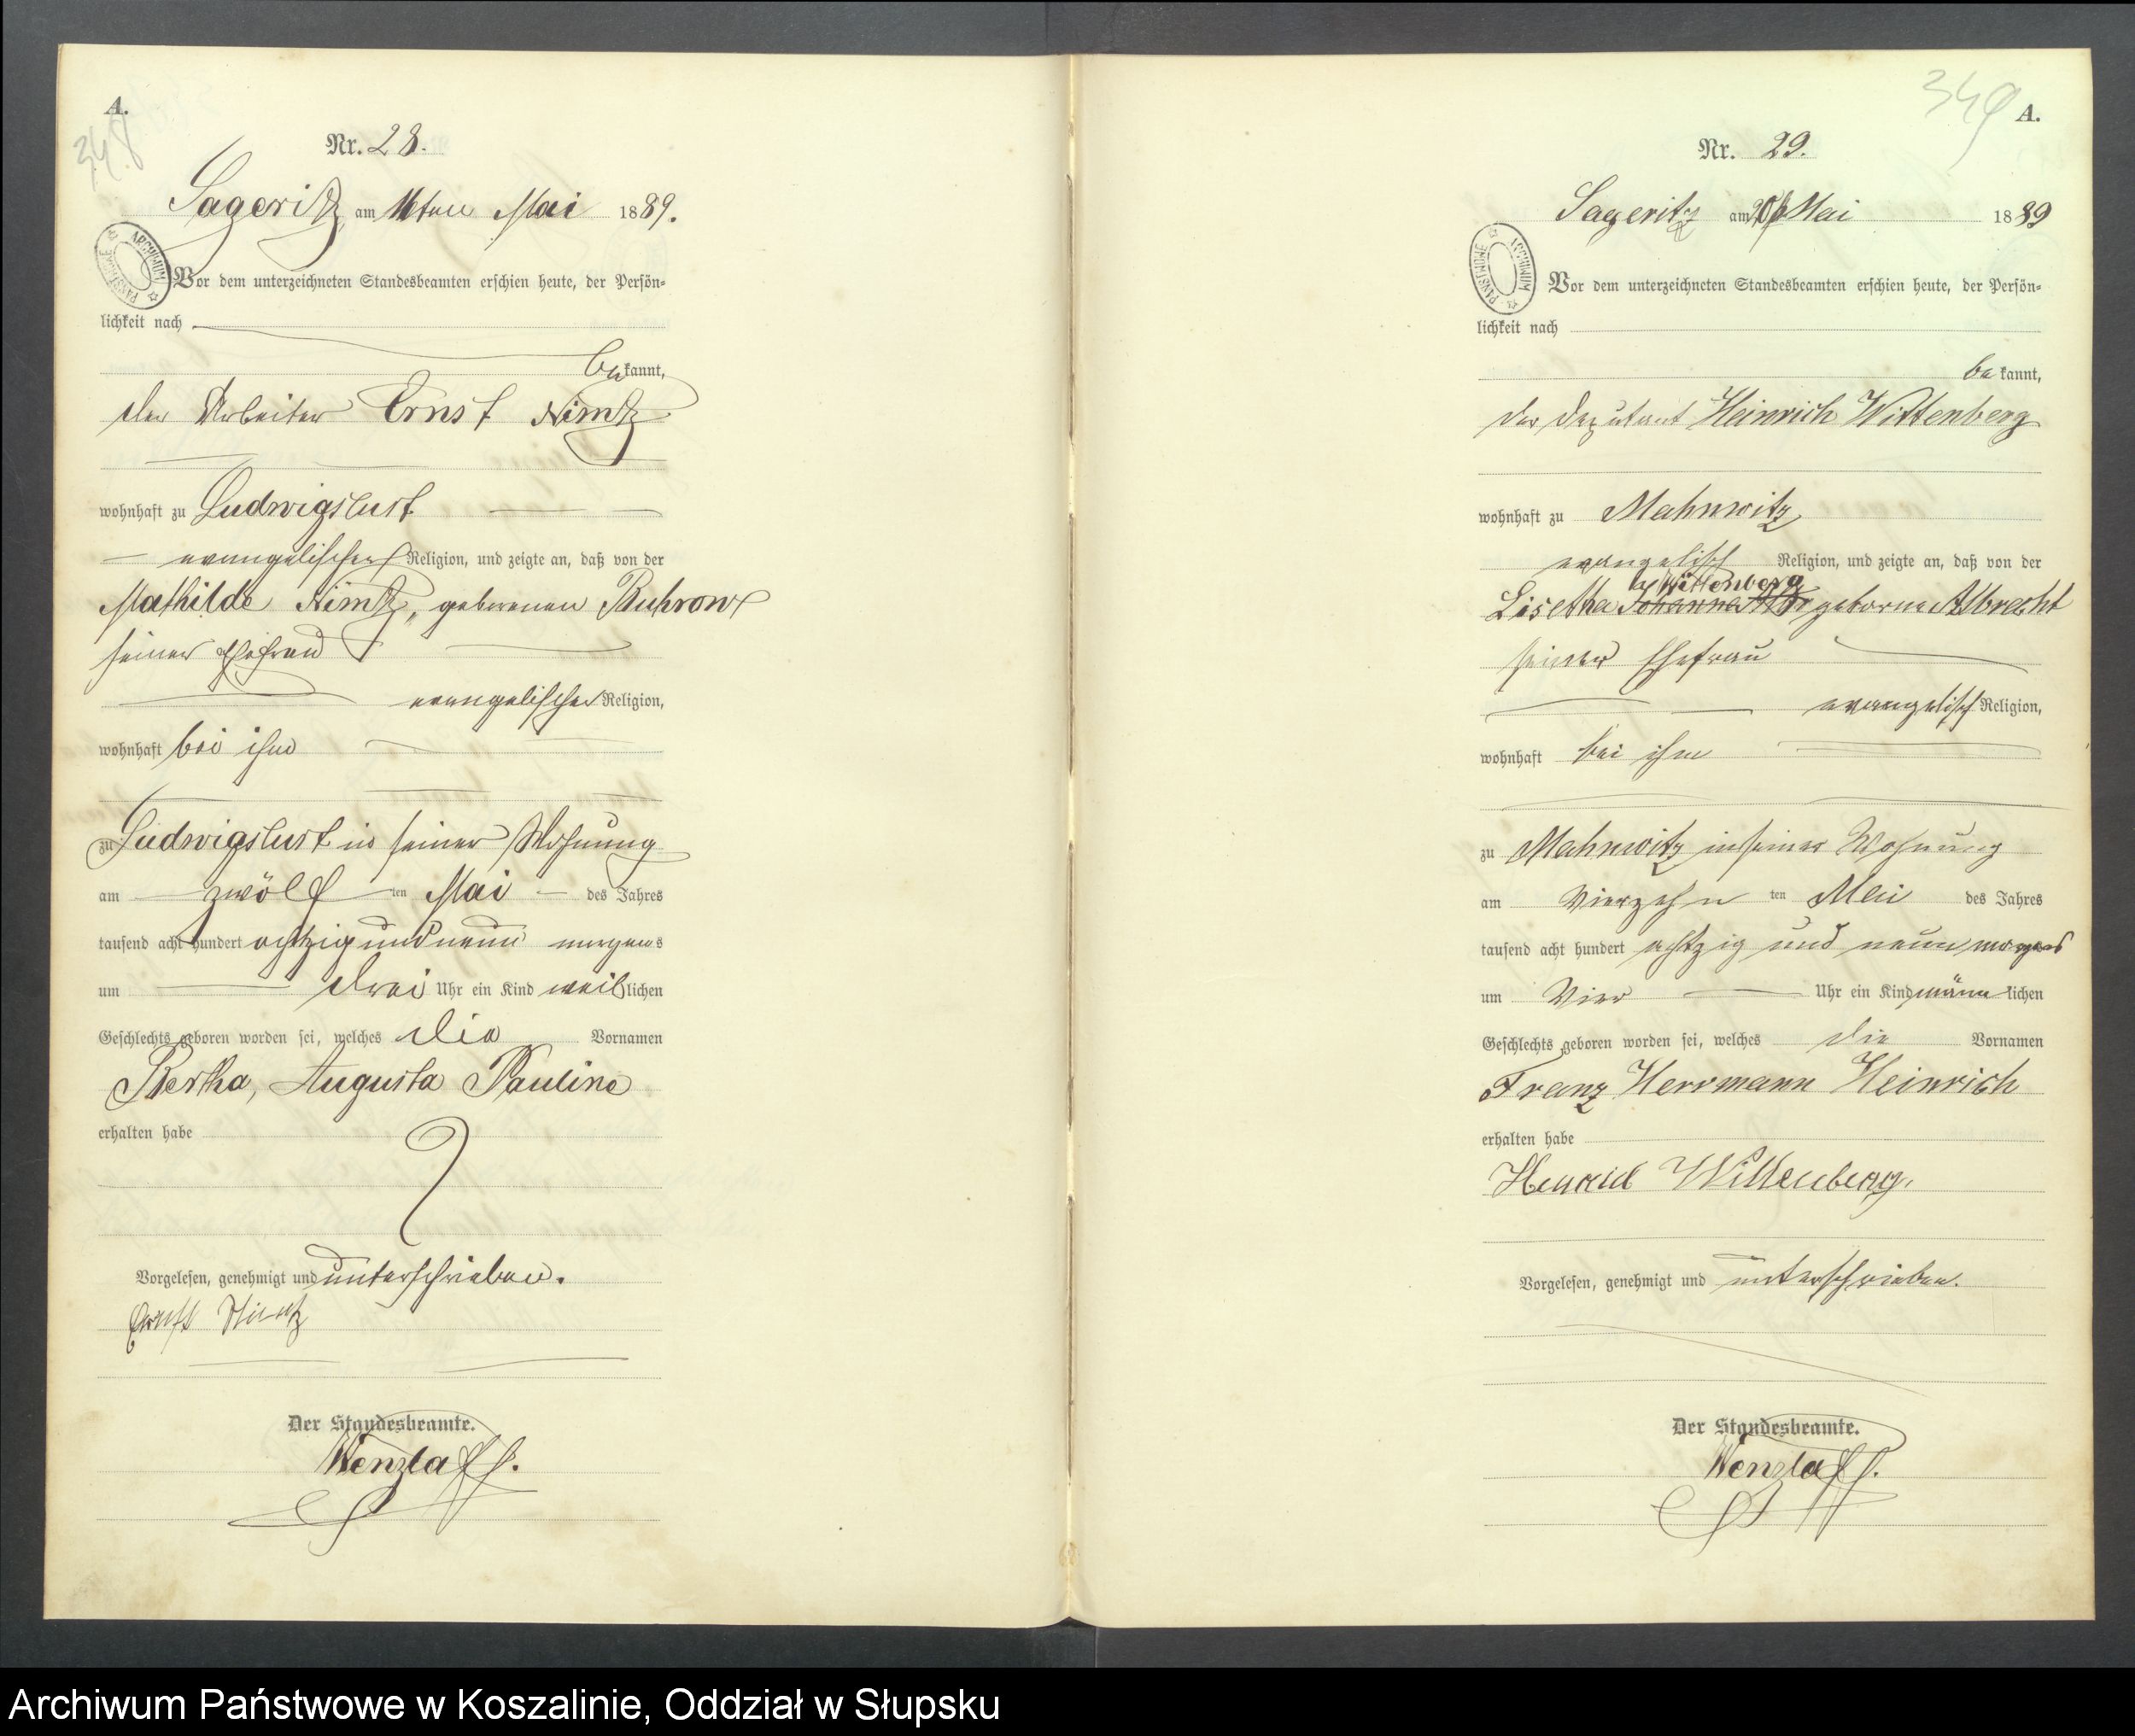 A.
348
Nr. 28.
Sageritz am 16ten Mai 1889.
ARCHIWUM PAŃSTWOWE
Vor dem unterzeichneten Standesbeamten erschien heute, der Persön-
lichkeit nach
bekannt,
der Arbeiter Ernst Nimtz
wohnhaft zu Ludwigslust
evangelischer Religion, und zeigte an, daß von der
Mathilde Nimtz, geborenen Buhrow
seiner Ehefrau
evangelischer Religion,
wohnhaft bei ihm
zu Ludwigslust in seiner Wohnung
am zwölf ten Mai des Jahres
tausend acht hundert achtzig und neun morgens
um drei Uhr ein Kind weiblichen
Geschlechts geboren worden sei, welches die Vornamen
Bertha, Augusta Pauline
erhalten habe
Vorgelesen, genehmigt und unterschrieben.
Ernst Nimtz
Der Standesbeamte.
Wenzlaff.
349
A.
Nr. 29.
Sageritz am Mai 1889
ARCHIWUM PAŃSTWOWE
Vor dem unterzeichneten Standesbeamten erschien heute, der Persön-
lichkeit nach
bekannt,
der Deputant Heinrich Wittenberg
wohnhaft zu Mahnwitz
evangelisch Religion, und zeigte an, daß von der
Wittenberg
Lisetha Johanna geborne Albrecht
seiner Ehefrau
evangelisch Religion,
wohnhaft bei ihm
zu Mahnwitz in seiner Wohnung
am Vierzehn ten Mai des Jahres
tausend acht hundert achtzig und neun morgens
um Vier Uhr ein Kind männlichen
Geschlechts geboren worden sei, welches die Vornamen
Franz Herrmann Heinrich
erhalten habe
Wittenberg.
Vorgelesen, genehmigt und unterschrieben.
Der Standesbeamte.
Wenzlaff.
Archiwum Państwowe w Koszalinie, Oddział w Słupsku